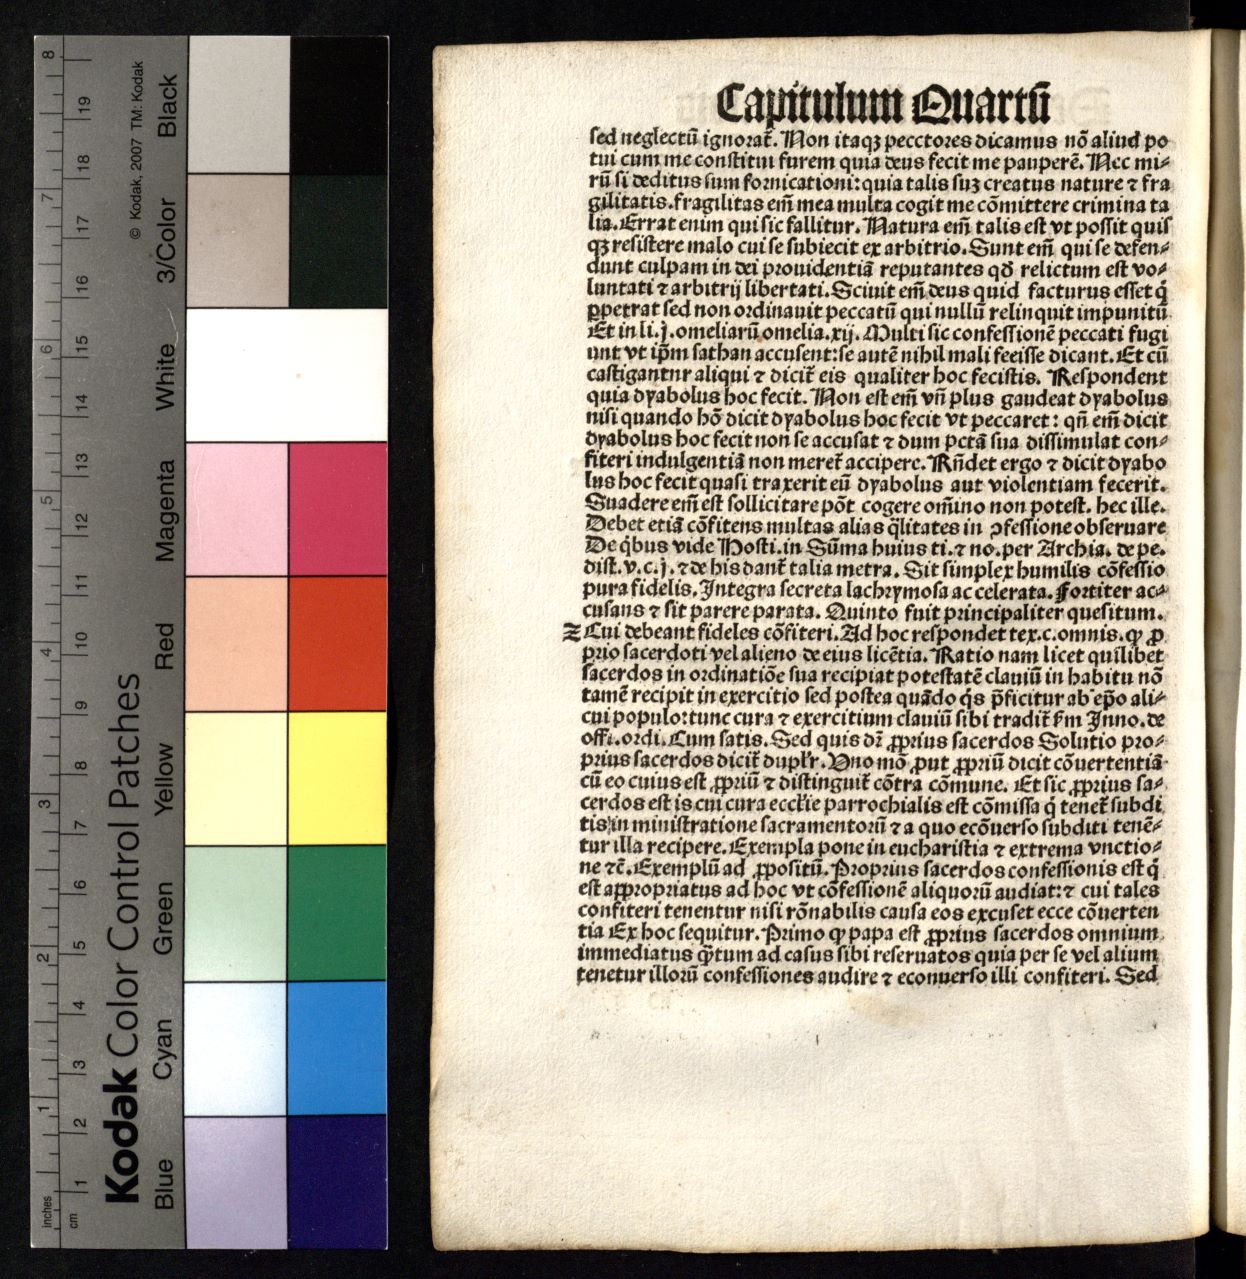 Capitulum Quartū
sed neglectū ignorat̄. Non itaqꝫ pecctores dicamus nō aliud po
tui cum me constitui furem quia deus fecit me pauperē. Nec mi⸗
rū si deditus sum fornicationi: quia talis suꝫ creatus nature ⁊ fra
gilitatis. fragilitas em̄ mea multa cogit me cōmittere crimina ta
lia. Errat enim qui sic fallitur. Natura em̄ talis est vt possit quis
qꝫ resistere malo cui se subiecit ex arbitrio. Sunt em̄ qui se defen⸗
dunt culpam in dei prouidentiā reputantes qđ relictum est vo⸗
luntati ⁊ arbitrij libertati. Sciuit em̄ deus quid facturus esset q̄
ꝑpetrat sed non ordinauit peccatū qui nullū relinquit impunitū
Et in li. j. omeliarū omelia. xij. Multi sic confessionē peccati fugi
unt vt ip̄m sathan accusent: se autē nihil mali feeisse dicant. Et cū
castigantnr aliqui ⁊ dicit̄ eis qualiter hoc fecistis. Respondent
quia dyabolus hoc fecit. Non est em̄ vn̄ plus gaudeat dyabolus
nisi quando hō dicit dyabolus hoc fecit vt peccaret: qn̄ em̄ dicit
dyabolus hoc fecit non se accusat ⁊ dum pctā sua dissimulat con⸗
fiteri indulgentiā non meret̄ accipere. Rn̄det ergo ⁊ dicit dyabo
lus hoc fecit quasi traxerit eū dyabolus aut violentiam fecerit.
Suadere em̄ est sollicitare pōt cogere om̄ino non potest. hec ille.
Debet etiā cōfitens multas alias q̄litates in ꝯfessione obseruare
De q̇bus vide Hosti. in Sūma huius ti. ⁊ no. per Archia. de pe.
dist. v. c. j. ⁊ de his dant̄ talia metra. Sit simplex humilis cōfessio
pura fidelis. Integra secreta lachrymosa ac celerata. Fortiter ac⸗
cusans ⁊ sit parere parata. Quinto fuit principaliter quesitum.
Z Cui debeant fideles cōfiteri. Ad hoc respondet tex. c. omnis. ꝙ ꝓ
prio sacerdoti vel alieno de eius licētia. Ratio nam licet quilibet
sacerdos in ordinatiōe sua recipiat potestatē clauiū in habitu nō
tamē recipit in exercitio sed postea quādo q̇s p̄ficitur ab ep̄o ali⸗
cui populo: tunc cura ⁊ exercitium clauiū sibi tradit̄ ẜm Inno. de
offi. ordi. Cum satis. Sed quis dr̄ ꝓprius sacerdos Solutio pro⸗
prius sacerdos dicit̄ dupl'r. Vno mō ꝓut ꝓpriū dicit cōuertentiā
cū eo cuius est ꝓpriū ⁊ distinguit̄ cōtra cōmune. Et sic ꝓprius sa⸗
cerdos est is cui cura eccl'ie parrochialis est cōmissa q̇ tenet̄ subdi
tis in ministratione sacramentorū ⁊ a quo ecōuerso subditi tenē⸗
tur illa recipere. Exempla pone in eucharistia ⁊ extrema vnctio⸗
ne ⁊c̄. Exemplū ad ꝓpositū. Proprius sacerdos confessionis est q̇
est appropriatus ad hoc vt cōfessionē aliquorū audiat: ⁊ cui tales
confiteri tenentur nisi rōnabilis causa eos excuset ecce cōuerten
tia Ex hoc sequitur. Primo ꝙ papa est ꝓprius sacerdos omnium
immediatus q̄tum ad casus sibi reseruatos quia per se vel alium
tenetur illorū confessiones audire ⁊ econuerso illi confiteri. Sed
Kodak Color Control Patches
© Kodak, 2007 TM: Kodak
Blue Cyan Green Yellow Red Magenta White 3/Color Black
inches 1 2 3 4 5 6 7 8
cm 1 2 3 4 5 6 7 8 9 10 11 12 13 14 15 16 17 18 19